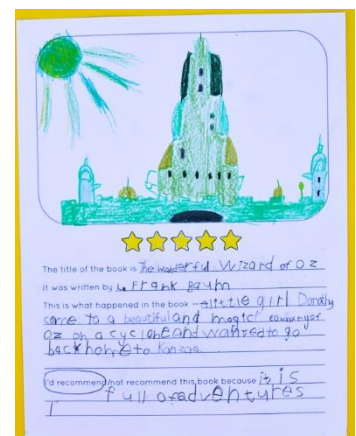 The title of the book is The wonderful Wizard of Oz
It was written by L Frank Baum
This is what happened in the book a little girl Dorothy
came to a beautiful and magic country of
Oz on a cyclone and wanted to go
back home to Kansas.
I'd recommend/not recommend this book because it is
full of adventures